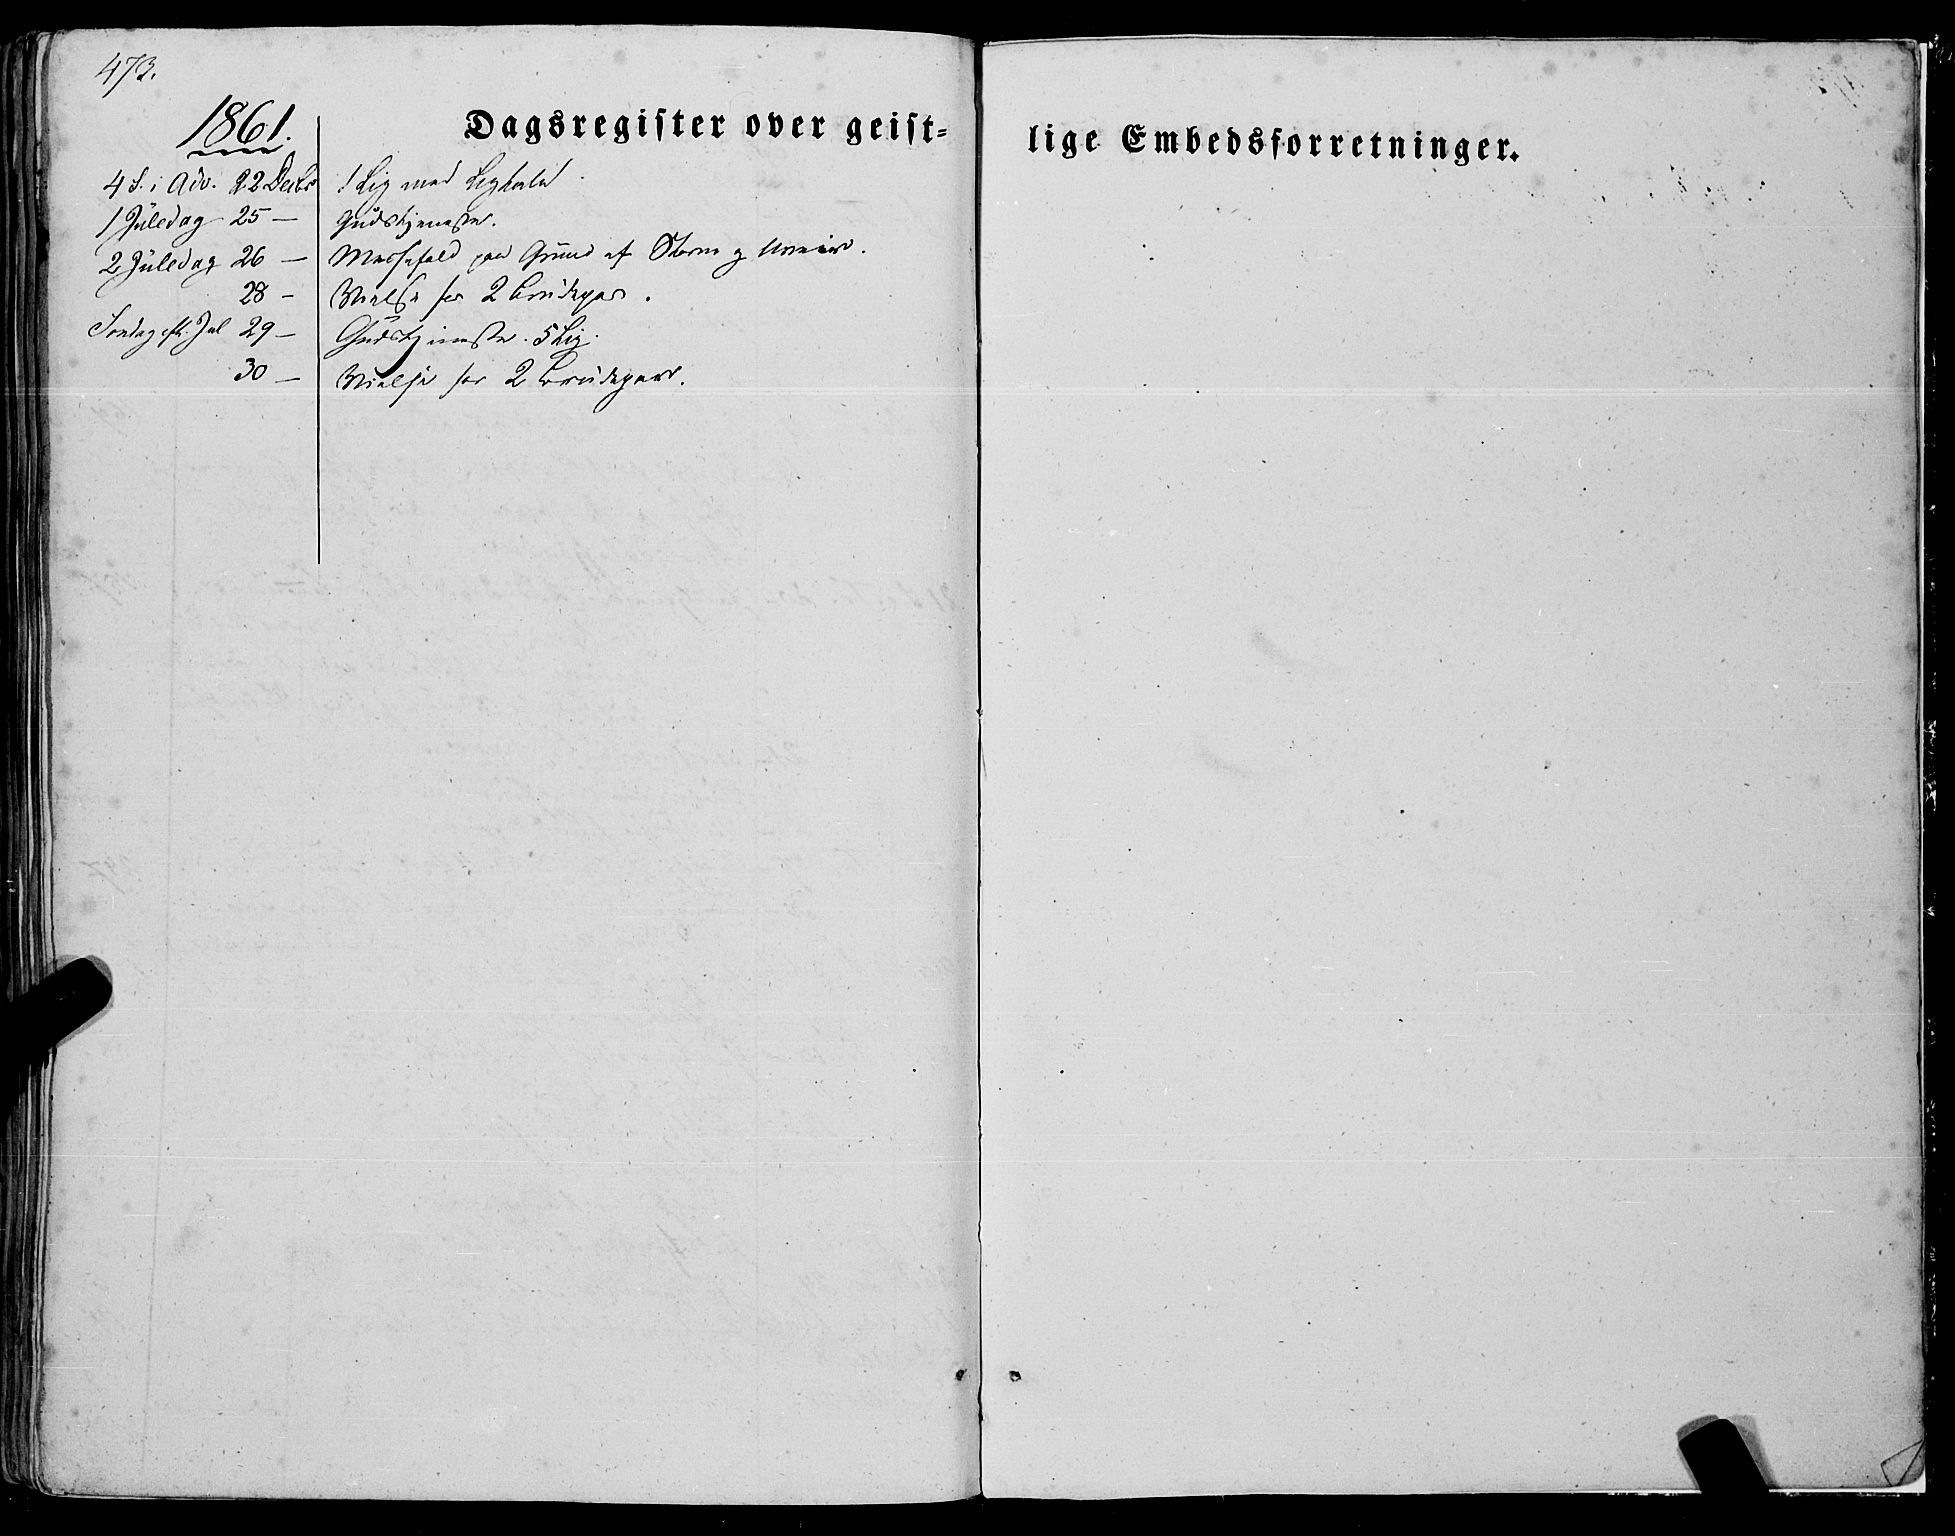 473.
1861.
Dagsregister over geist=
lige Embedsforretninger.
4 S. i Adv. 22 Decbr 1 Lig med Ligtale
1 Juledag 25 — Gudstjeneste.
2 Juledag 26 — Messefald paa Grund af Storm og Uveir.
28 — Vielse for 2 Brudepar.
Søndag eft. Jul 29 — Gudstjeneste. 5 Lig.
30 — Vielse for 2 Brudepar.